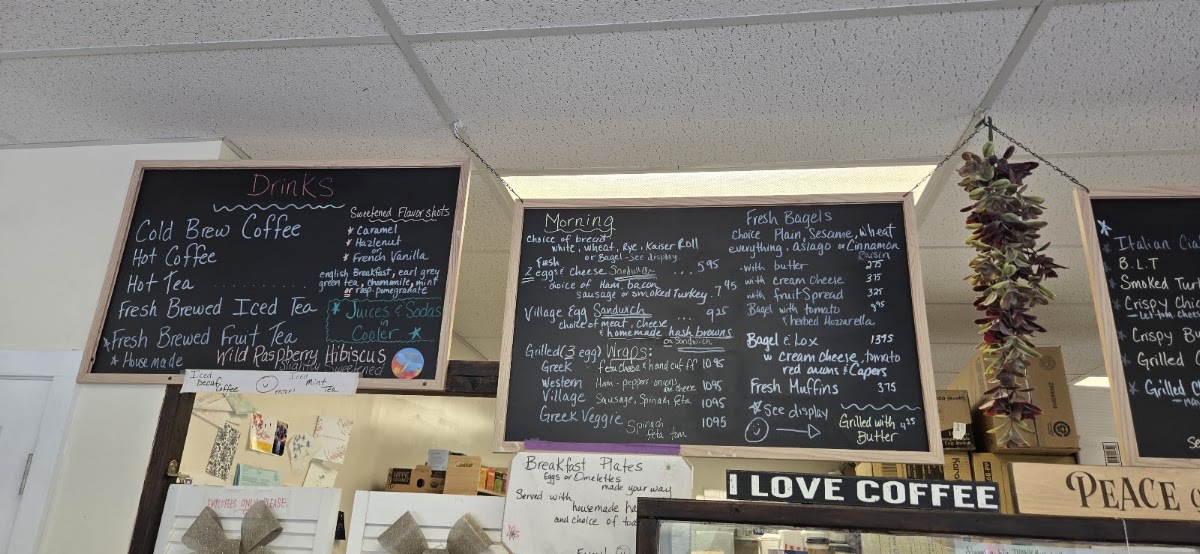 Drinks
Cold Brew Coffee
Hot Coffee
Hot Tea ............
Fresh Brewed Iced Tea
Fresh Brewed Fruit Tea
Housemade
Wild Raspberry Hibiscus
Slightly Sweetened
Sweetened Flavor shots
Caramel
Hazlenut
or
French Vanilla
english Breakfast, earl grey
green tea, chamomile, mint
or rasp. pomegranate
Juices & Sodas
in
Cooler
Iced
Decaf
Coffee
Iced
mint
Tea
EMPLOYEES ONLY PLEASE
Morning
choice of bread
white, wheat, Rye, Kaiser Roll
or Bagel-See display
2 eggs & cheese Sandwich .... 5 95
choice of Ham, bacon,
sausage or smoked Turkey. 7 45
Village Egg Sandwich .... 9 25
choice of meat, cheese,
& homemade hash browns
on Sandwich
Grilled (3 egg) Wraps:
Greek feta cheese & hand cut ff 10 95
Western Ham-peppers-onions cheese 10 95
Village Sausage, Spinach feta 10 95
Greek Veggie Spinach feta tom 10 95
Fresh Bagels
choice Plain, Sesame, wheat
everything, asiago or Cinnamon
Raisin
with butter 2 75
with cream cheese 3 75
with fruit Spread 3 25
Bagel with tomato
& herbed Mozzarella
Bagel & Lox 13 95
w cream cheese, tomato
red onions & Capers
Fresh Muffins 3 75
See display
Grilled with 4 25
Butter
Breakfast Plates
Eggs or Omelettes
made your way
Served with
housemade
and choice of
I LOVE COFFEE
PEACE
Italian
B.L.T
Smoked
Crispy
Crispy
Grilled
Grilled